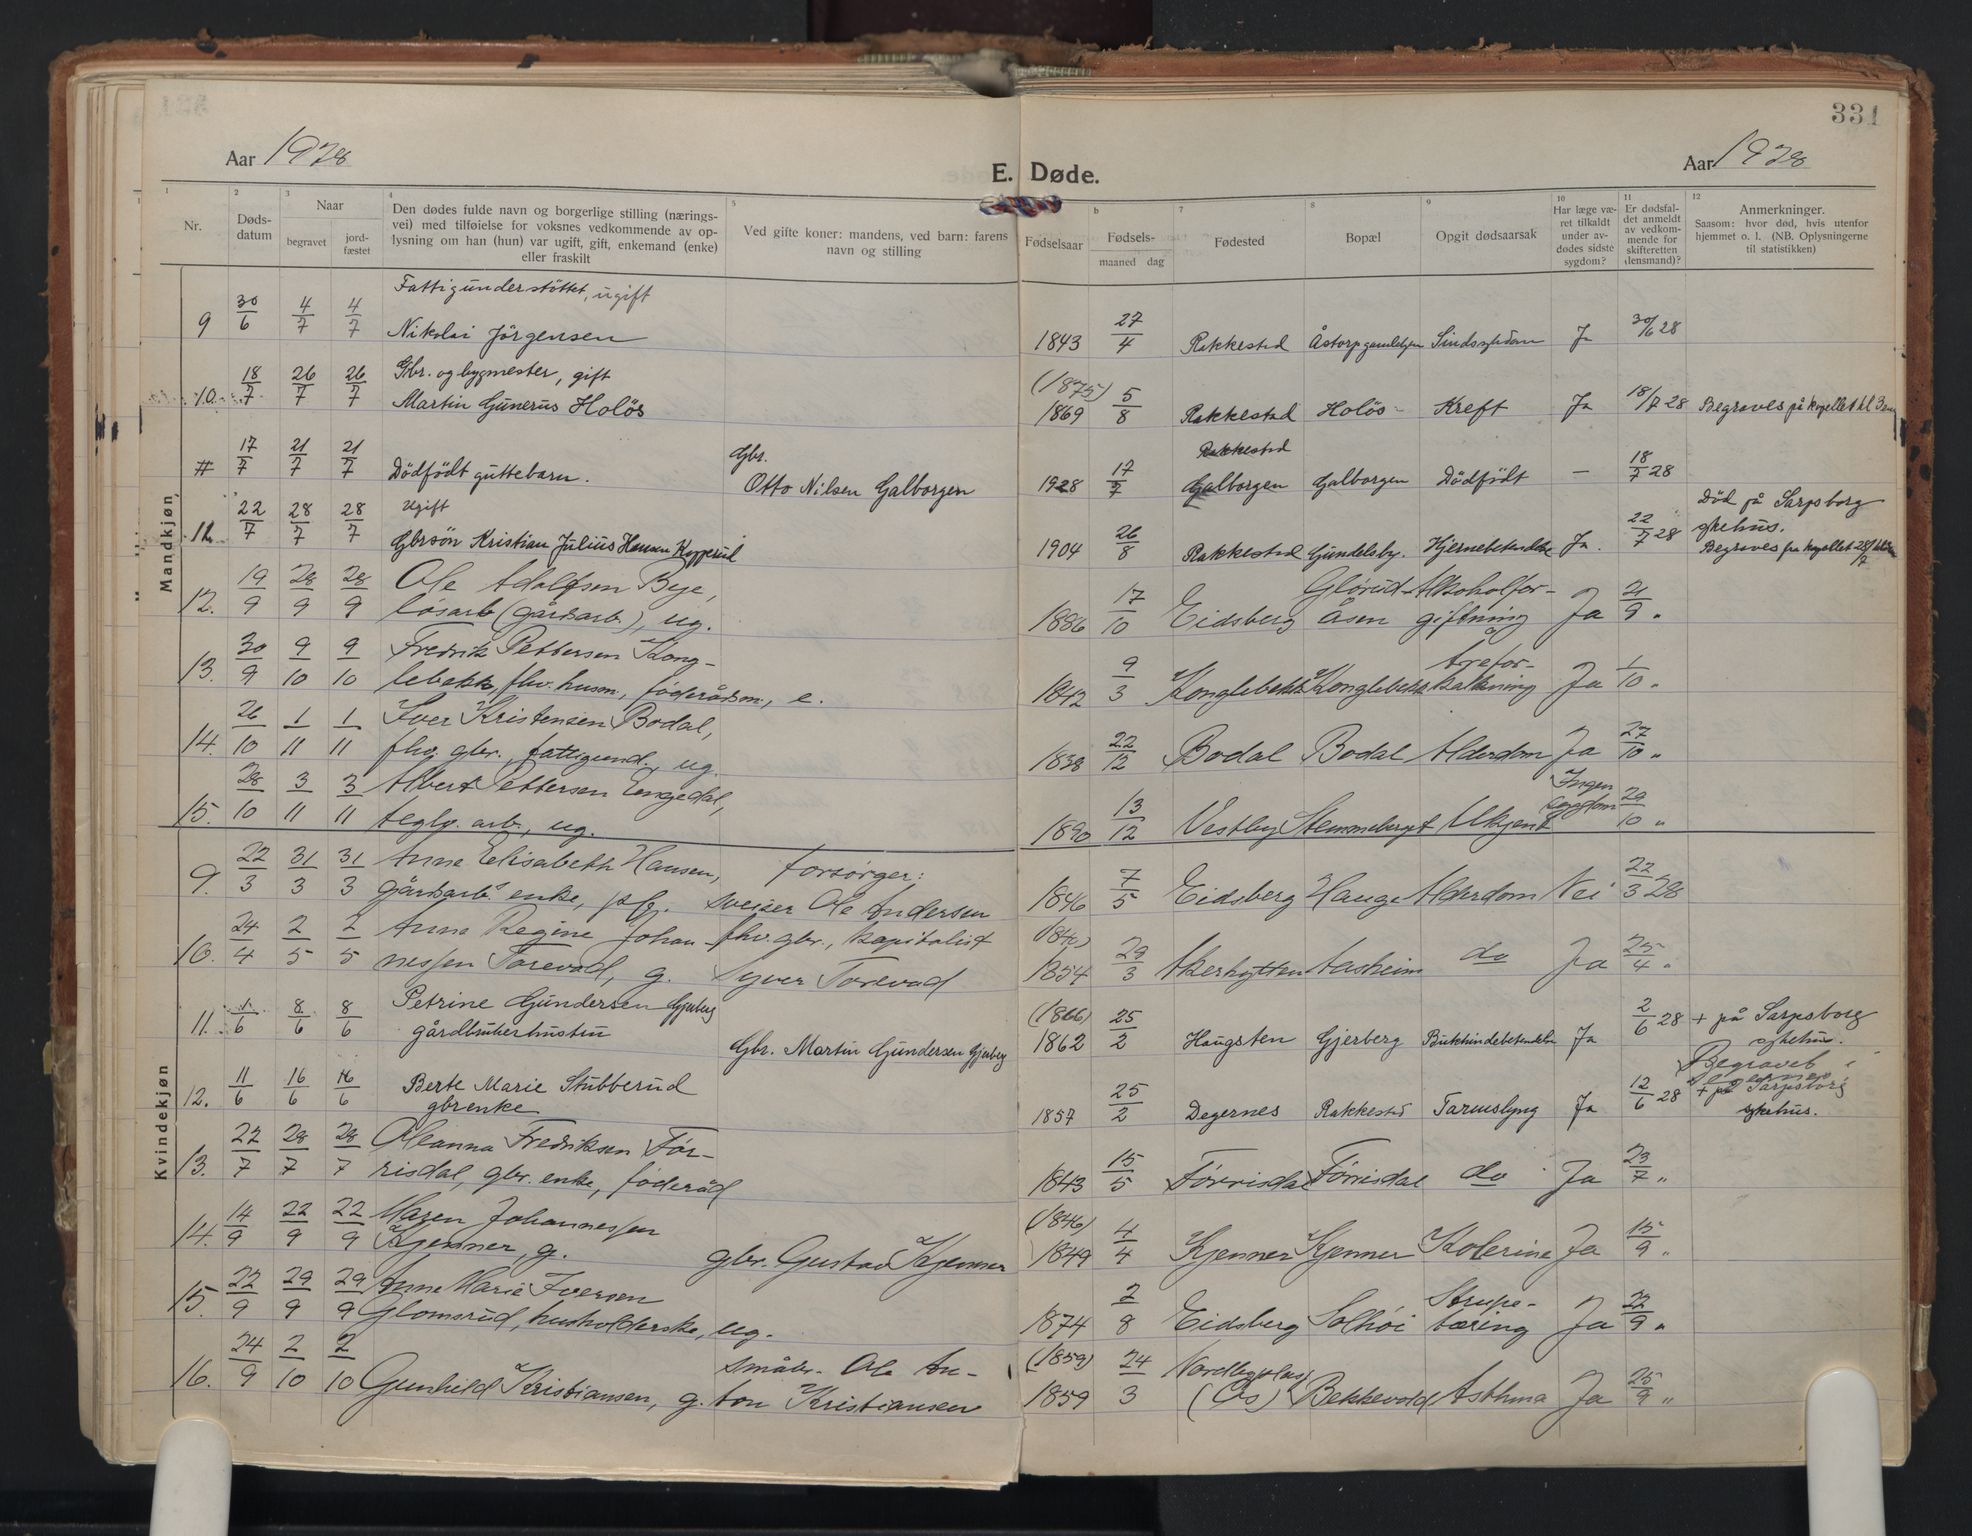 331
Aar 1928
E. Døde.
Aar 1928
1 2 3 4 5 b 7 8 9 10 11 12
Nr.
Døds-
datum
Naar
begravet
jord-
fæstet
Den dødes fulde navn og borgerlige stilling (nærings-
vei) med tilføielse for voksnes vedkommende av op-
lysning om han (hun) var ugift, gift, enkemand (enke)
eller fraskilt
Ved gifte koner: mandens, ved barn: farens
navn og stilling
Fødselsaar
Fødsels-
maaned dag
Fødested
Bopæl
Opgit dødsaarsak
Har læge væ-
ret tilkaldt
under av-
dødes sidste
sygdom?
Er dødsfal-
det anmeldt
av vedkom-
mende for
skifteretten
(lensmand)?
Anmerkninger.
Saasom: hvor død, hvis utenfor
hjemmet o. l. (NB. Oplysningerne
til statistikken)
Mandkjøn
Fattigunderstöttet, ugift
9 30/6 4/7 4/7 Nikolai Jörgensen 1843 27/4 Rakkestad Åstorp Sindssykdom Ja 30/6 28
Gbr. og bygmester, gift (1875)
10. 18/7 26/7 26/7 Martin Gunerus Holös 1869 5/8 Rakkestad Holös Kreft Ja 18/7 28 Begraves på kapellet kl 3 em
Gbr. Rakkestad
# 17/7 21/7 21/7 Dödfödt guttebarn. Otto Nilsen Galborgen 1928 17/7 Galborgen Galborgen Dödfödt — 18/7 28
Ugift Död på Sarpsborg
sykehus.
11. 22/7 28/7 28/7 Gbrsön Kristian Julius Hansen Kopperud 1904 26/8 Rakkestad Gundelsby. Hjernebetendelse Ja. 22/7 28 Begraves fra kapellet 28/7
12. 19/9 28/9 28/9 Ole Adolfsen Bye, Glørud- Alkoholfor-
løsarb. (gårdsarb.), ug. 1886 17/10 Eidsberg Åsen giftning Ja 21/9 "
13. 30/9 9/10 9/10 Fredrik Pettersen Kong- Årefor-
lebekk, fhv. husm., føderådsm., e. 1842 9/3 Konglebekk Konglebekk kalkning Ja 1/10 "
14. 26/10 1/11 1/11 Iver Kristensen Bodal,
fhv. gbr., fattigund., ug. 1838 22/12 Bodal Bodal Alderdom Ja 27/10 "
15. 28/10 3/11 3/11 Albert Pettersen Engedal, Ingen
sygdom
teglv. arb., ug. 1890 13/12 Vestby Stemmeberget Ukjent 29/10 "
Kvindekjøn
9. 22/3 31/3 31/3 Anne Elisabeth Hansen, forsørger:
gårdsarb. enke, sveiser Ole Andersen 1846 7/5 Eidsberg Hauge Alderdom Nei 22/3 28
10. 24/4 2/5 2/5 Anna Regine Johan- fhv. gbr., kapitalist (1840)
nessen Torevad, g. Syver Torevad 1854 29/3 Akerhytten Aasheim do Ja 25/4 "
11. 1/6 8/6 8/6 Petrine Gundersen Gjerberg (1866)
gårdbrukerhustru Gbr. Martin Gundersen Gjerberg 1862 25/2 Haugsten Gjerberg Bukhindebetendelse Ja 2/6 28 + på Sarpsborg
sykehus.
Begravet i
Degernes
12. 11/6 16/6 16/6 Berte Marie Stubberud
gbrenke 1857 25/2 Degernes Rakkestad Tarmslyng Ja 12/6 28 + på Sarpsborg
sykehus.
13. 22/7 28/7 28/7 Oleanna Fredriksen Før-
risdal, gbr. enke, føderåd 1843 15/5 Førrisdal Førrisdal do Ja 23/7 "
14. 14/9 22/9 22/9 Maren Johannessen (1846)
Kjenner, g. gbr. Gustav Kjenner 1849 4/4 Kjenner Kjenner Kolerine Ja 15/9 "
15. 22/9 29/9 29/9 Anne Marie Iversen Strupe-
Glomsrud, husholderske, ug. 1874 2/8 Eidsberg Solhøi tæring Ja 22/9 "
16. 24/9 2/10 2/10 småbr. Ole An- (1859)
Gunhild Kristiansen, g. ton Kristiansen 1859 24/3 (Os) Bekkevold Asthma Ja 25/9 "